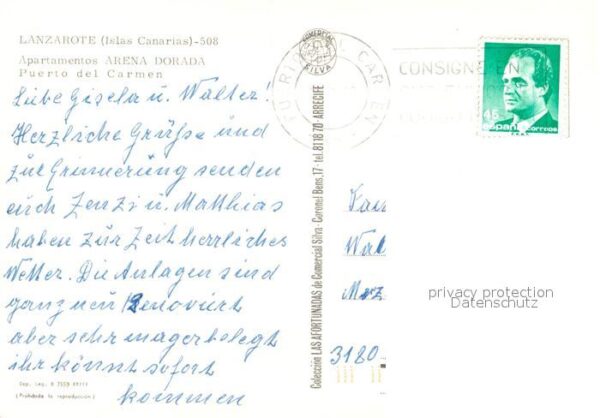 LANZAROTE (Islas Canarias)-508
Apartamentos ARENA DORADA
Puerto del Carmen
Liebe Gisela u. Walter!
Herzliche Grüße und
zur Erinnerung senden
euch Zenzi u. Matthias
haben zur Zeit herrliches
Wetter. Die Anlagen sind
ganz neu Renoviert
aber sehr mager belegt
ihr könnt sofort
kommen
Dep. Leg. B
(Prohibida la reproducción)
Colección LAS AFORTUNADAS de Comercial Silva - Coronel Bens, 17 - tel. 81 18 70 - ARRECIFE
COMERCIAL
SILVA
CAR EN
CONSIGNE EN
45
españa correos
3180
privacy protection
Datenschutz